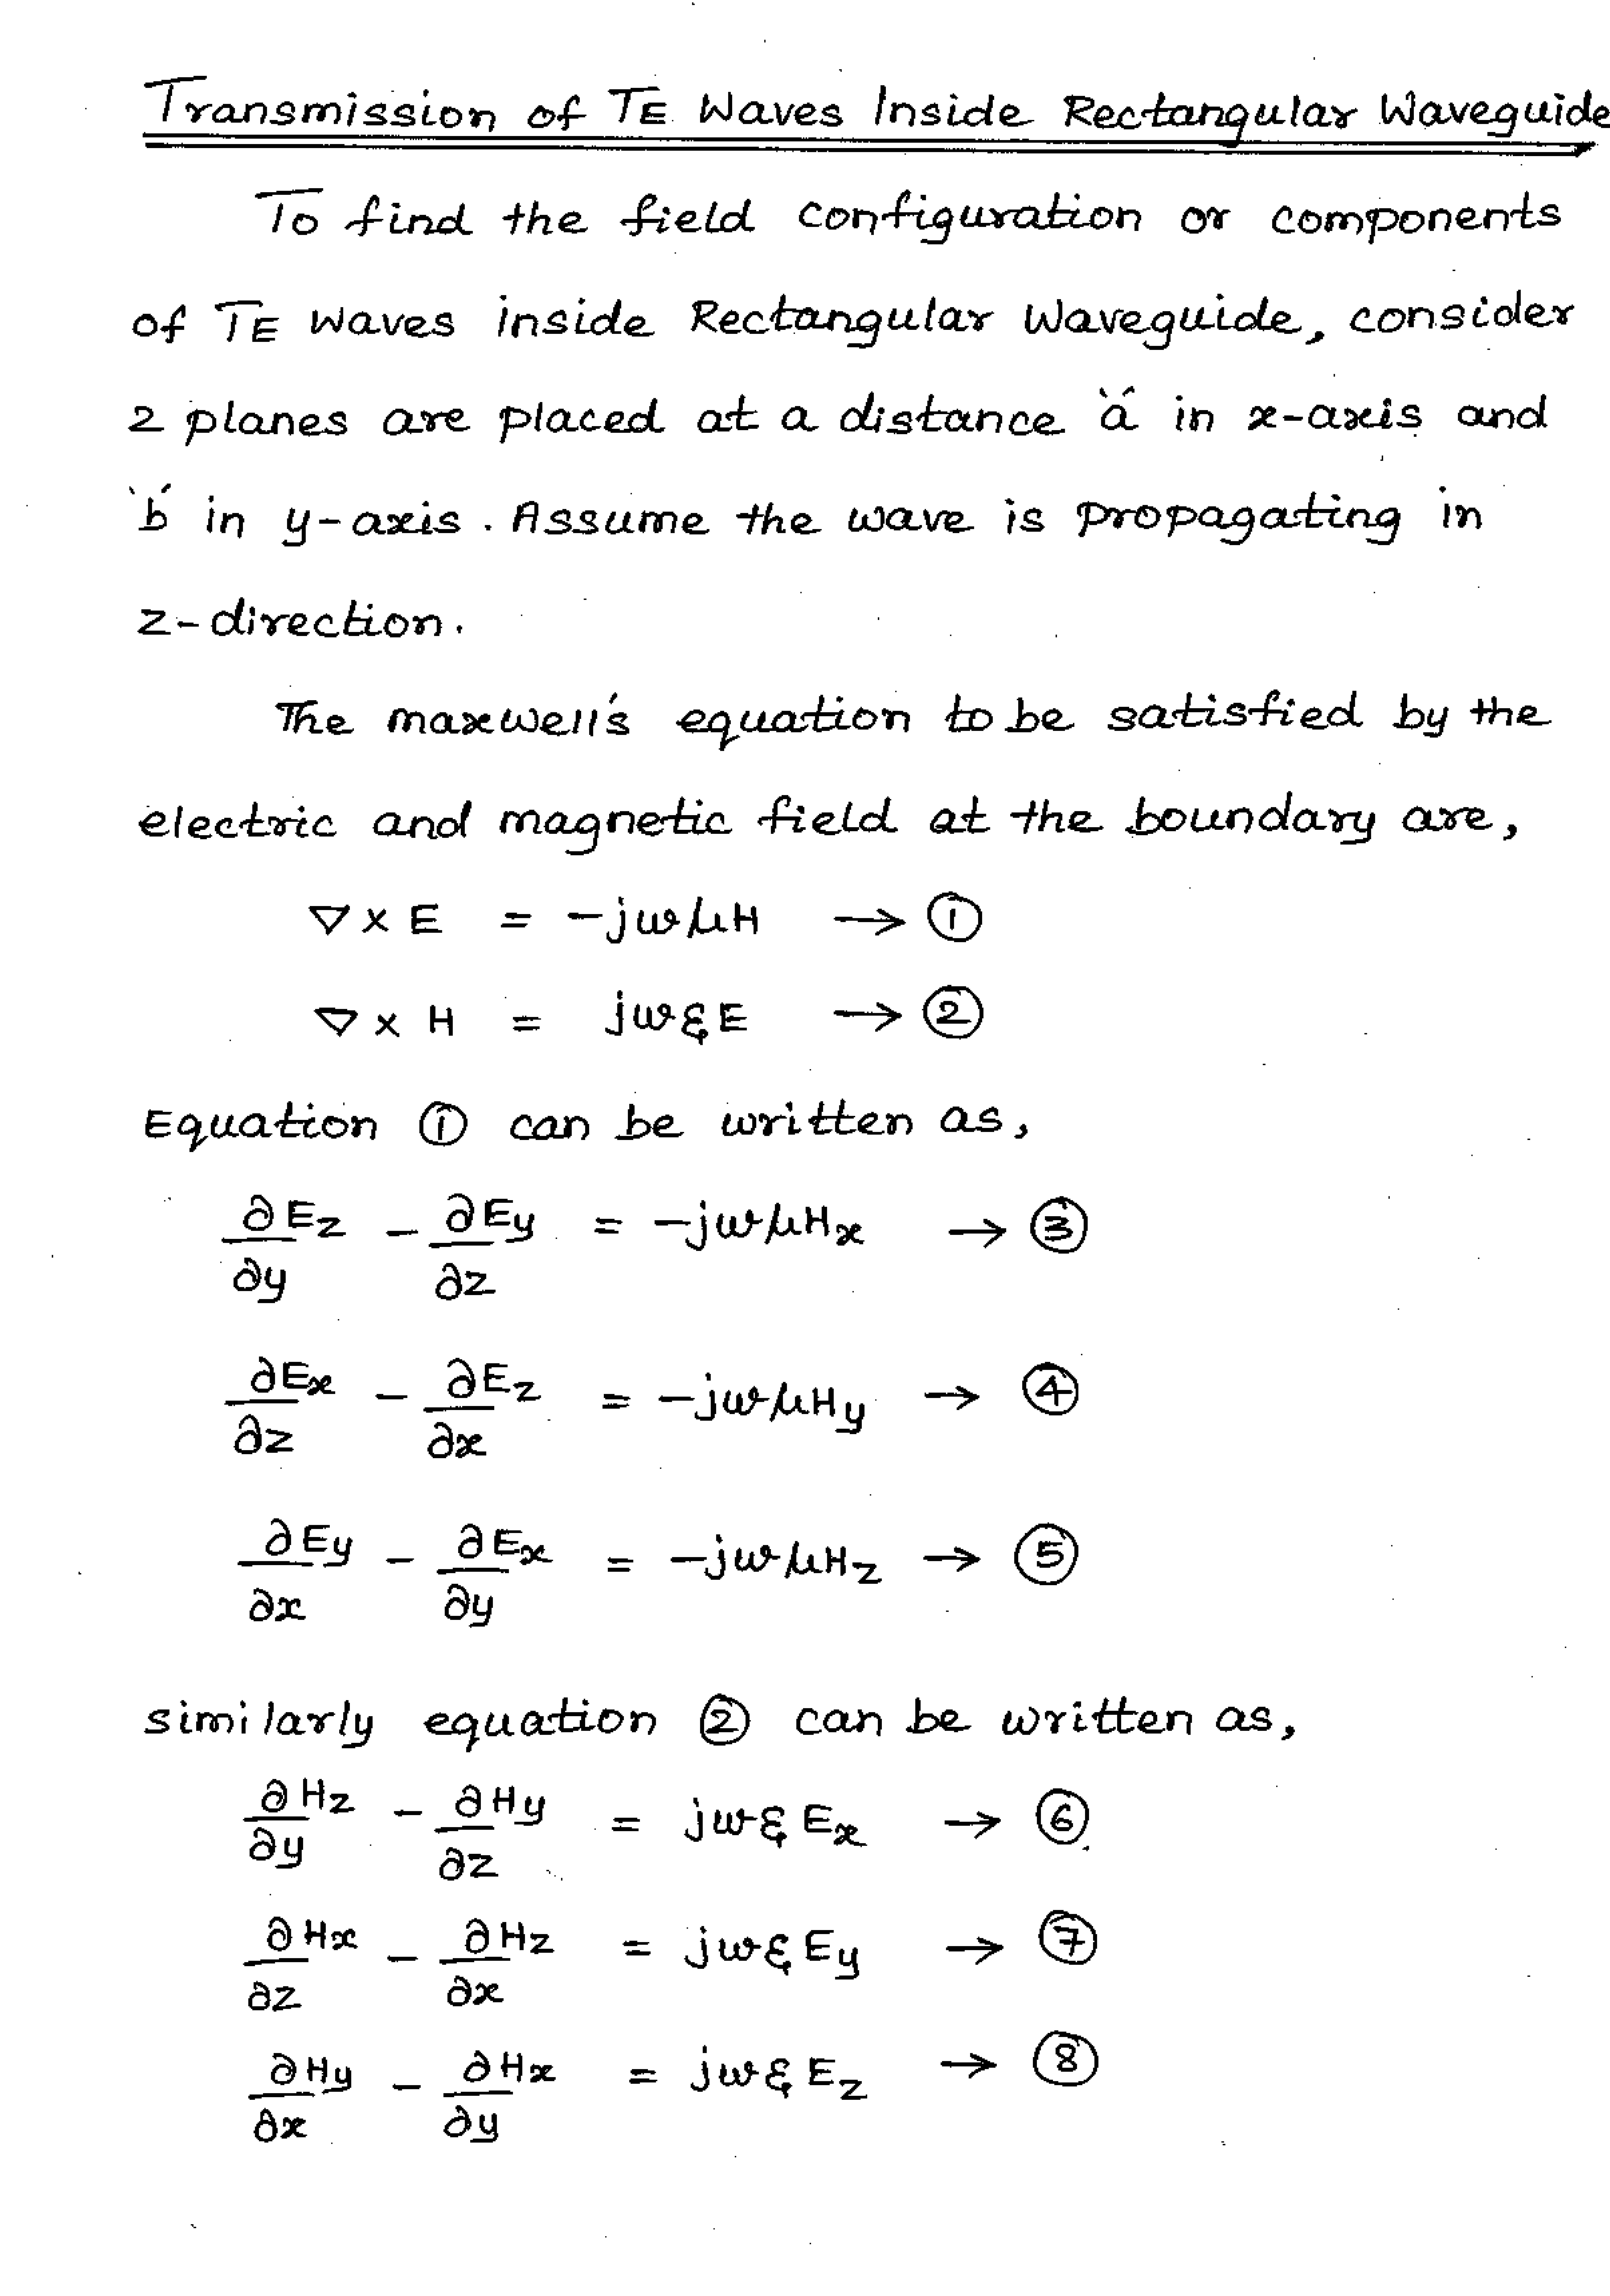 Transmission of TE Waves Inside Rectangular Waveguide
To find the field configuration or components
of TE waves inside Rectangular Waveguide, consider
2 planes are placed at a distance 'a' in x-axis and
'b' in y-axis. Assume the wave is propagating in
z-direction.
The maxwell's equation to be satisfied by the
electric and magnetic field at the boundary are,
∇ × E = -jωμH → ①
∇ × H = jωξE → ②
Equation ① can be written as,
∂Ez/∂y - ∂Ey/∂z = -jωμHx → ③
∂Ex/∂z - ∂Ez/∂x = -jωμHy → ④
∂Ey/∂x - ∂Ex/∂y = -jωμHz → ⑤
similarly equation ② can be written as,
∂Hz/∂y - ∂Hy/∂z = jωξEx → ⑥
∂Hx/∂z - ∂Hz/∂x = jωξEy → ⑦
∂Hy/∂x - ∂Hx/∂y = jωξEz → ⑧